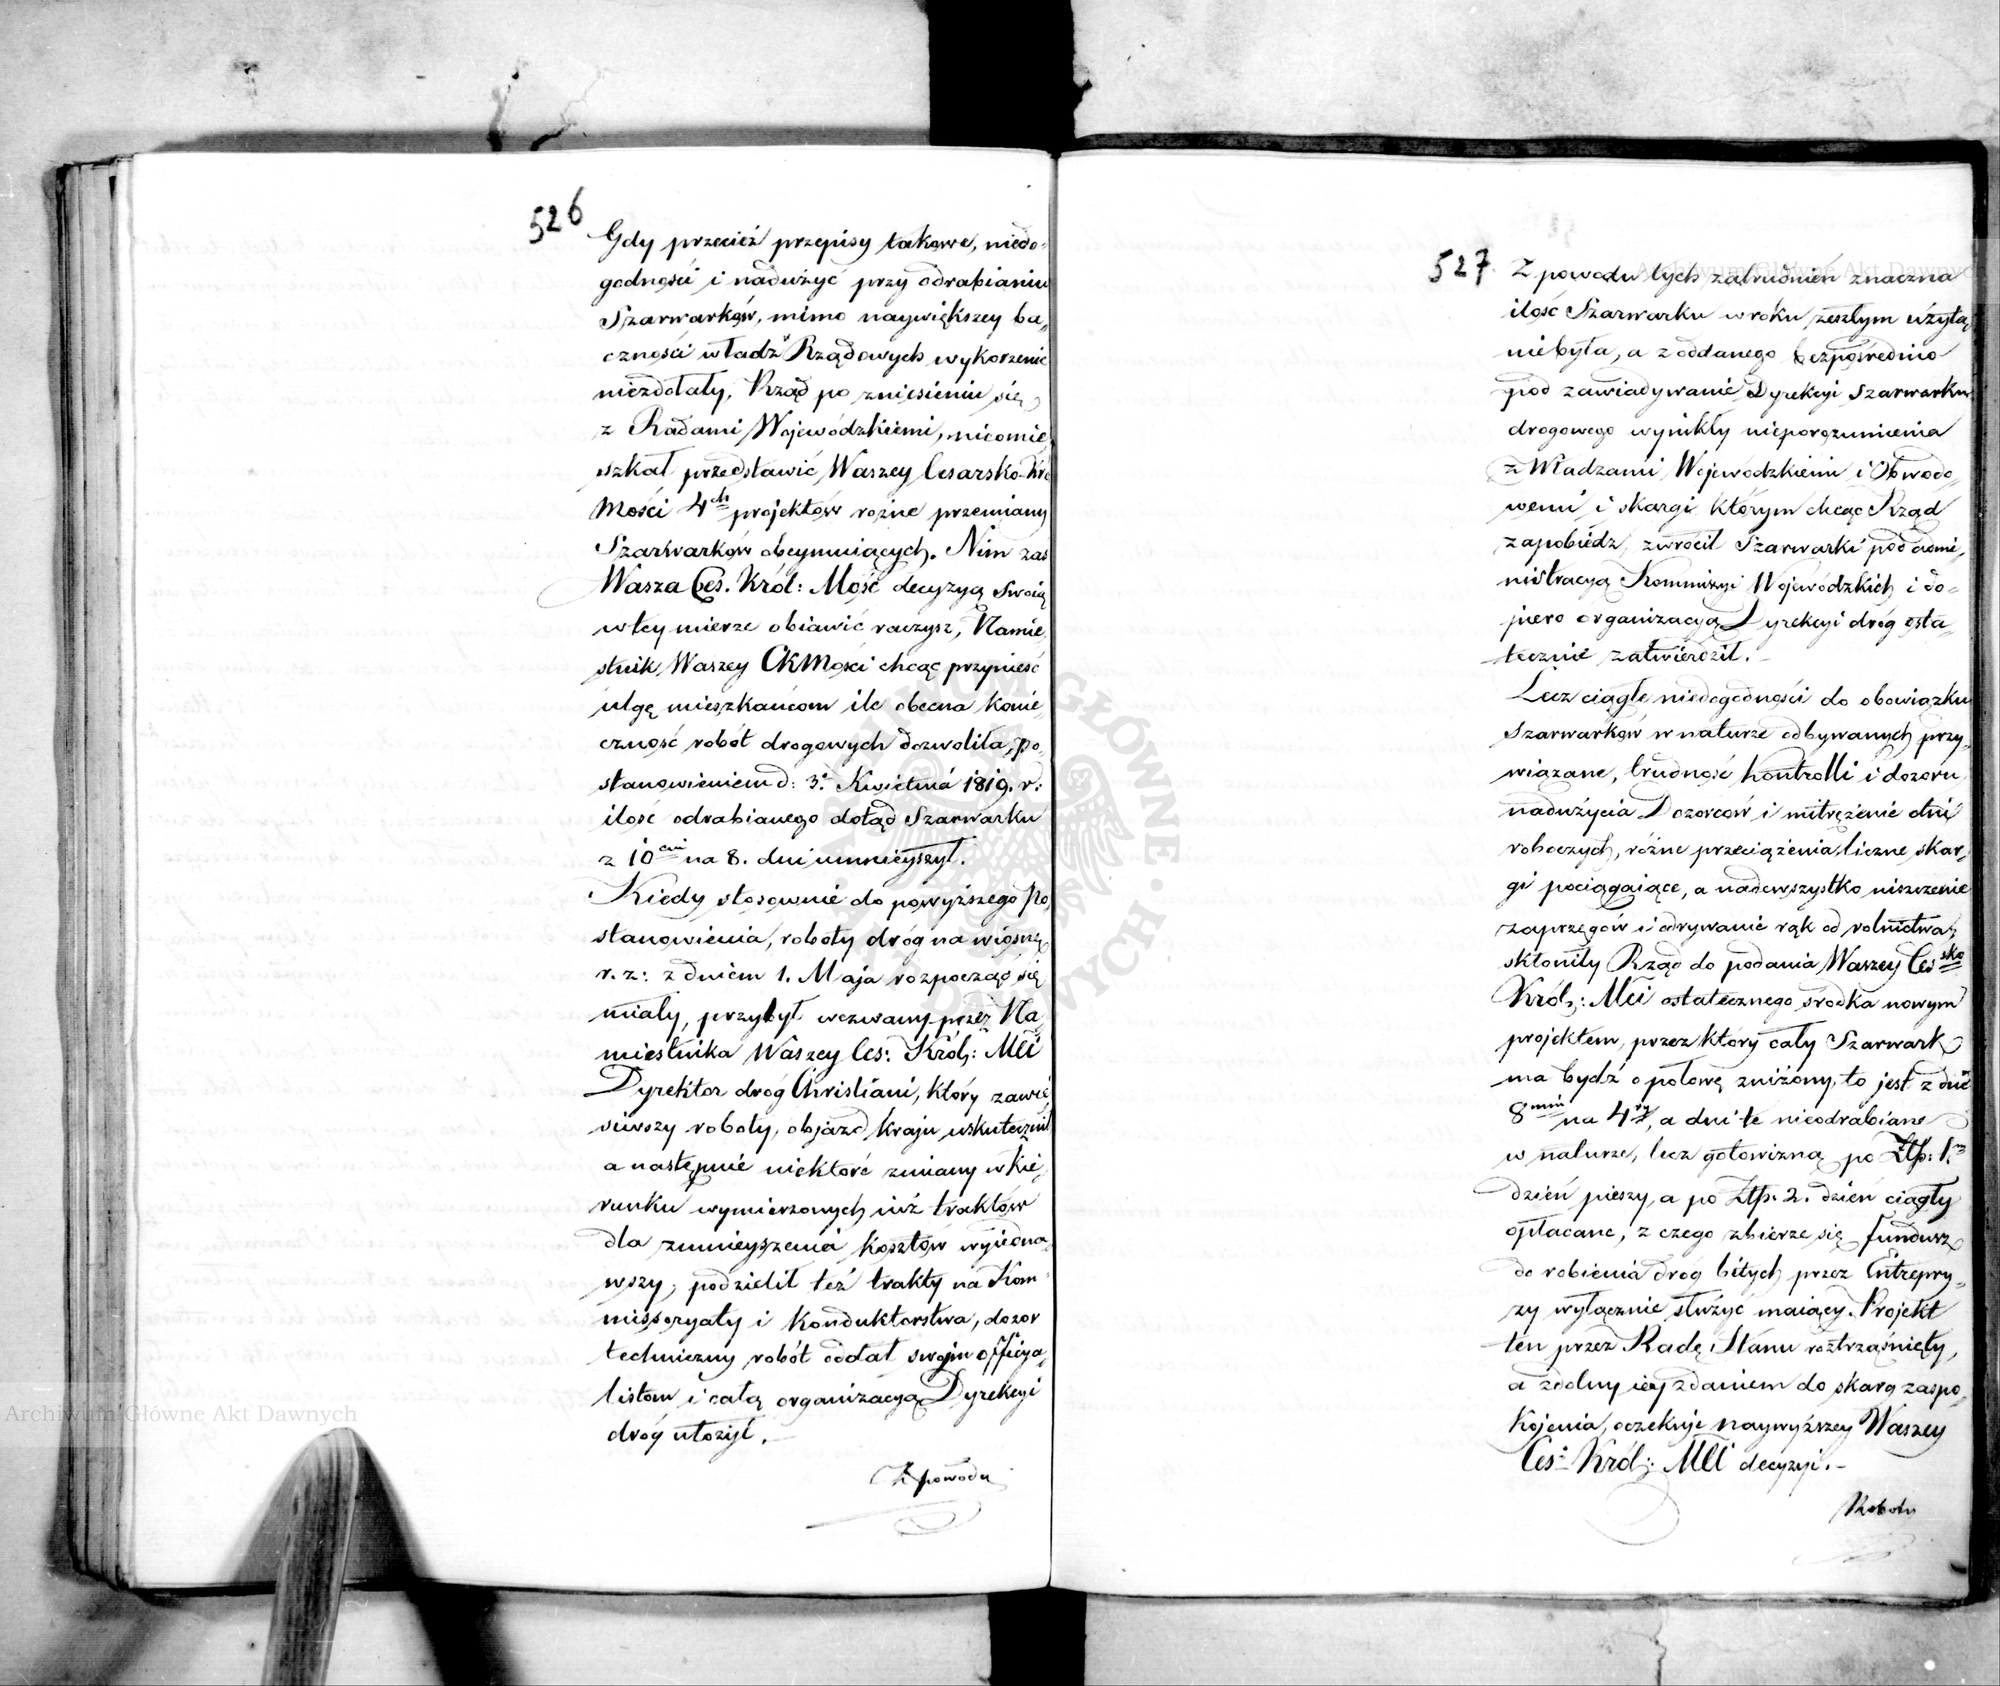 526
Gdy przecież przepisy takowe, niedo-
godności i nadużyć przy odrabianiu
Szarwarków, mimo naywiększey ba-
czności władz Rządowych wykorzenić
niezdołały, Rząd po zniesieniu się
z Radami Wojewódzkiemi, nieomie-
szkał przedstawić Waszey Cesarsko-Kró
Mości 4ch projektów rożne przemiany
Szarwarków obeymuiących. Nim zaś
Wasza Ces. Król: Mość decyzyą Swoią
w tey mierze obiawić raczysz, Namie-
stnik Waszey CKMości chcąc przynieść
ulgę mieszkańcom ile obecna konie-
czność robót drogowych dozwoliła, po-
stanowieniem d: 3o Kwietnia 1819. r:
ilość odrabianego dotąd Szarwarku
z 10ciu na 8. dni umnieyszył.
Kiedy stosownie do powyższego Po-
stanowienia, roboty dróg na wiosnę
r. z: z dniem 1. Maja rozpocząć się
miały, przybył wezwany przez Na-
miestnika Waszey Ces: Król: Mci
Dyrektor dróg Christiani, który zawie-
siwszy roboty, objazd kraju uskutecznił
a następnie niektóre zmiany w kie-
runku wymierzonych iuż traktów
dla zmnieyszenia kosztów wyiedna-
wszy, podzielił też trakty na Kom-
missoryaty i Konduktorstwa, dozor
techniczny robót oddał swoim officya-
listom i całą organizacyą Dyrekcyi
dróg ułożył.
Z powodu
527
Z powodu tych zatrudnień znaczna
ilość Szarwarku w roku zeszłym użytą
niebyła, a z oddanego bezpośrednio
pod zawiadywanie Dyrekcyi Szarwarku
drogowego wynikły nieporozumienia
z Władzami Wojewódzkiemi i Obwodo-
wemi i skargi którym chcąc Rząd
zapobiedz, zwrócił Szarwarki pod admi-
nistracyą Kommissyi Wojewódzkich i do-
piero organizacyą Dyrekcyi dróg osta-
tecznie zatwierdził.
Lecz ciągłe niedogodności do obowiązku
Szarwarków w naturze odbywanych przy-
wiązane, trudność kontrolli i dozoru
nadużycia Dozorców i mitrężenie dni
roboczych, różne przeciążenia, liczne skar-
gi pociągaiące, a nadewszystko niszczenie
zaprzęgów i odrywanie rąk od rolnictwa,
skłoniły Rząd do podania Waszey Cessko
Król: Mci ostatecznego środka nowym
projektem, przez który cały Szarwark
ma bydź o połowę zniżony, to jest z dni
8miu na 4ry, a dni te nieodrabiane
w naturze, lecz gotowizną po Złp: 1.
dzień pieszy, a po Złp. 2. dzień ciągły
opłacane, z czego zbierze się fundusz
do robienia dróg bitych przez Entrepry-
zy wyłącznie służyć maiący. Projekt
ten przez Radę Stanu roztrząśnięty,
a zdolny iey zdaniem do skarg zaspo-
kojenia, oczekuje naywyższey Waszey
Ces: Król: Mci decyzyi.
Roboty
Archiwum Główne Akt Dawnych
Archiwum Główne Akt Dawnych
ARCHIWUM GŁÓWNE AKT DAWNYCH